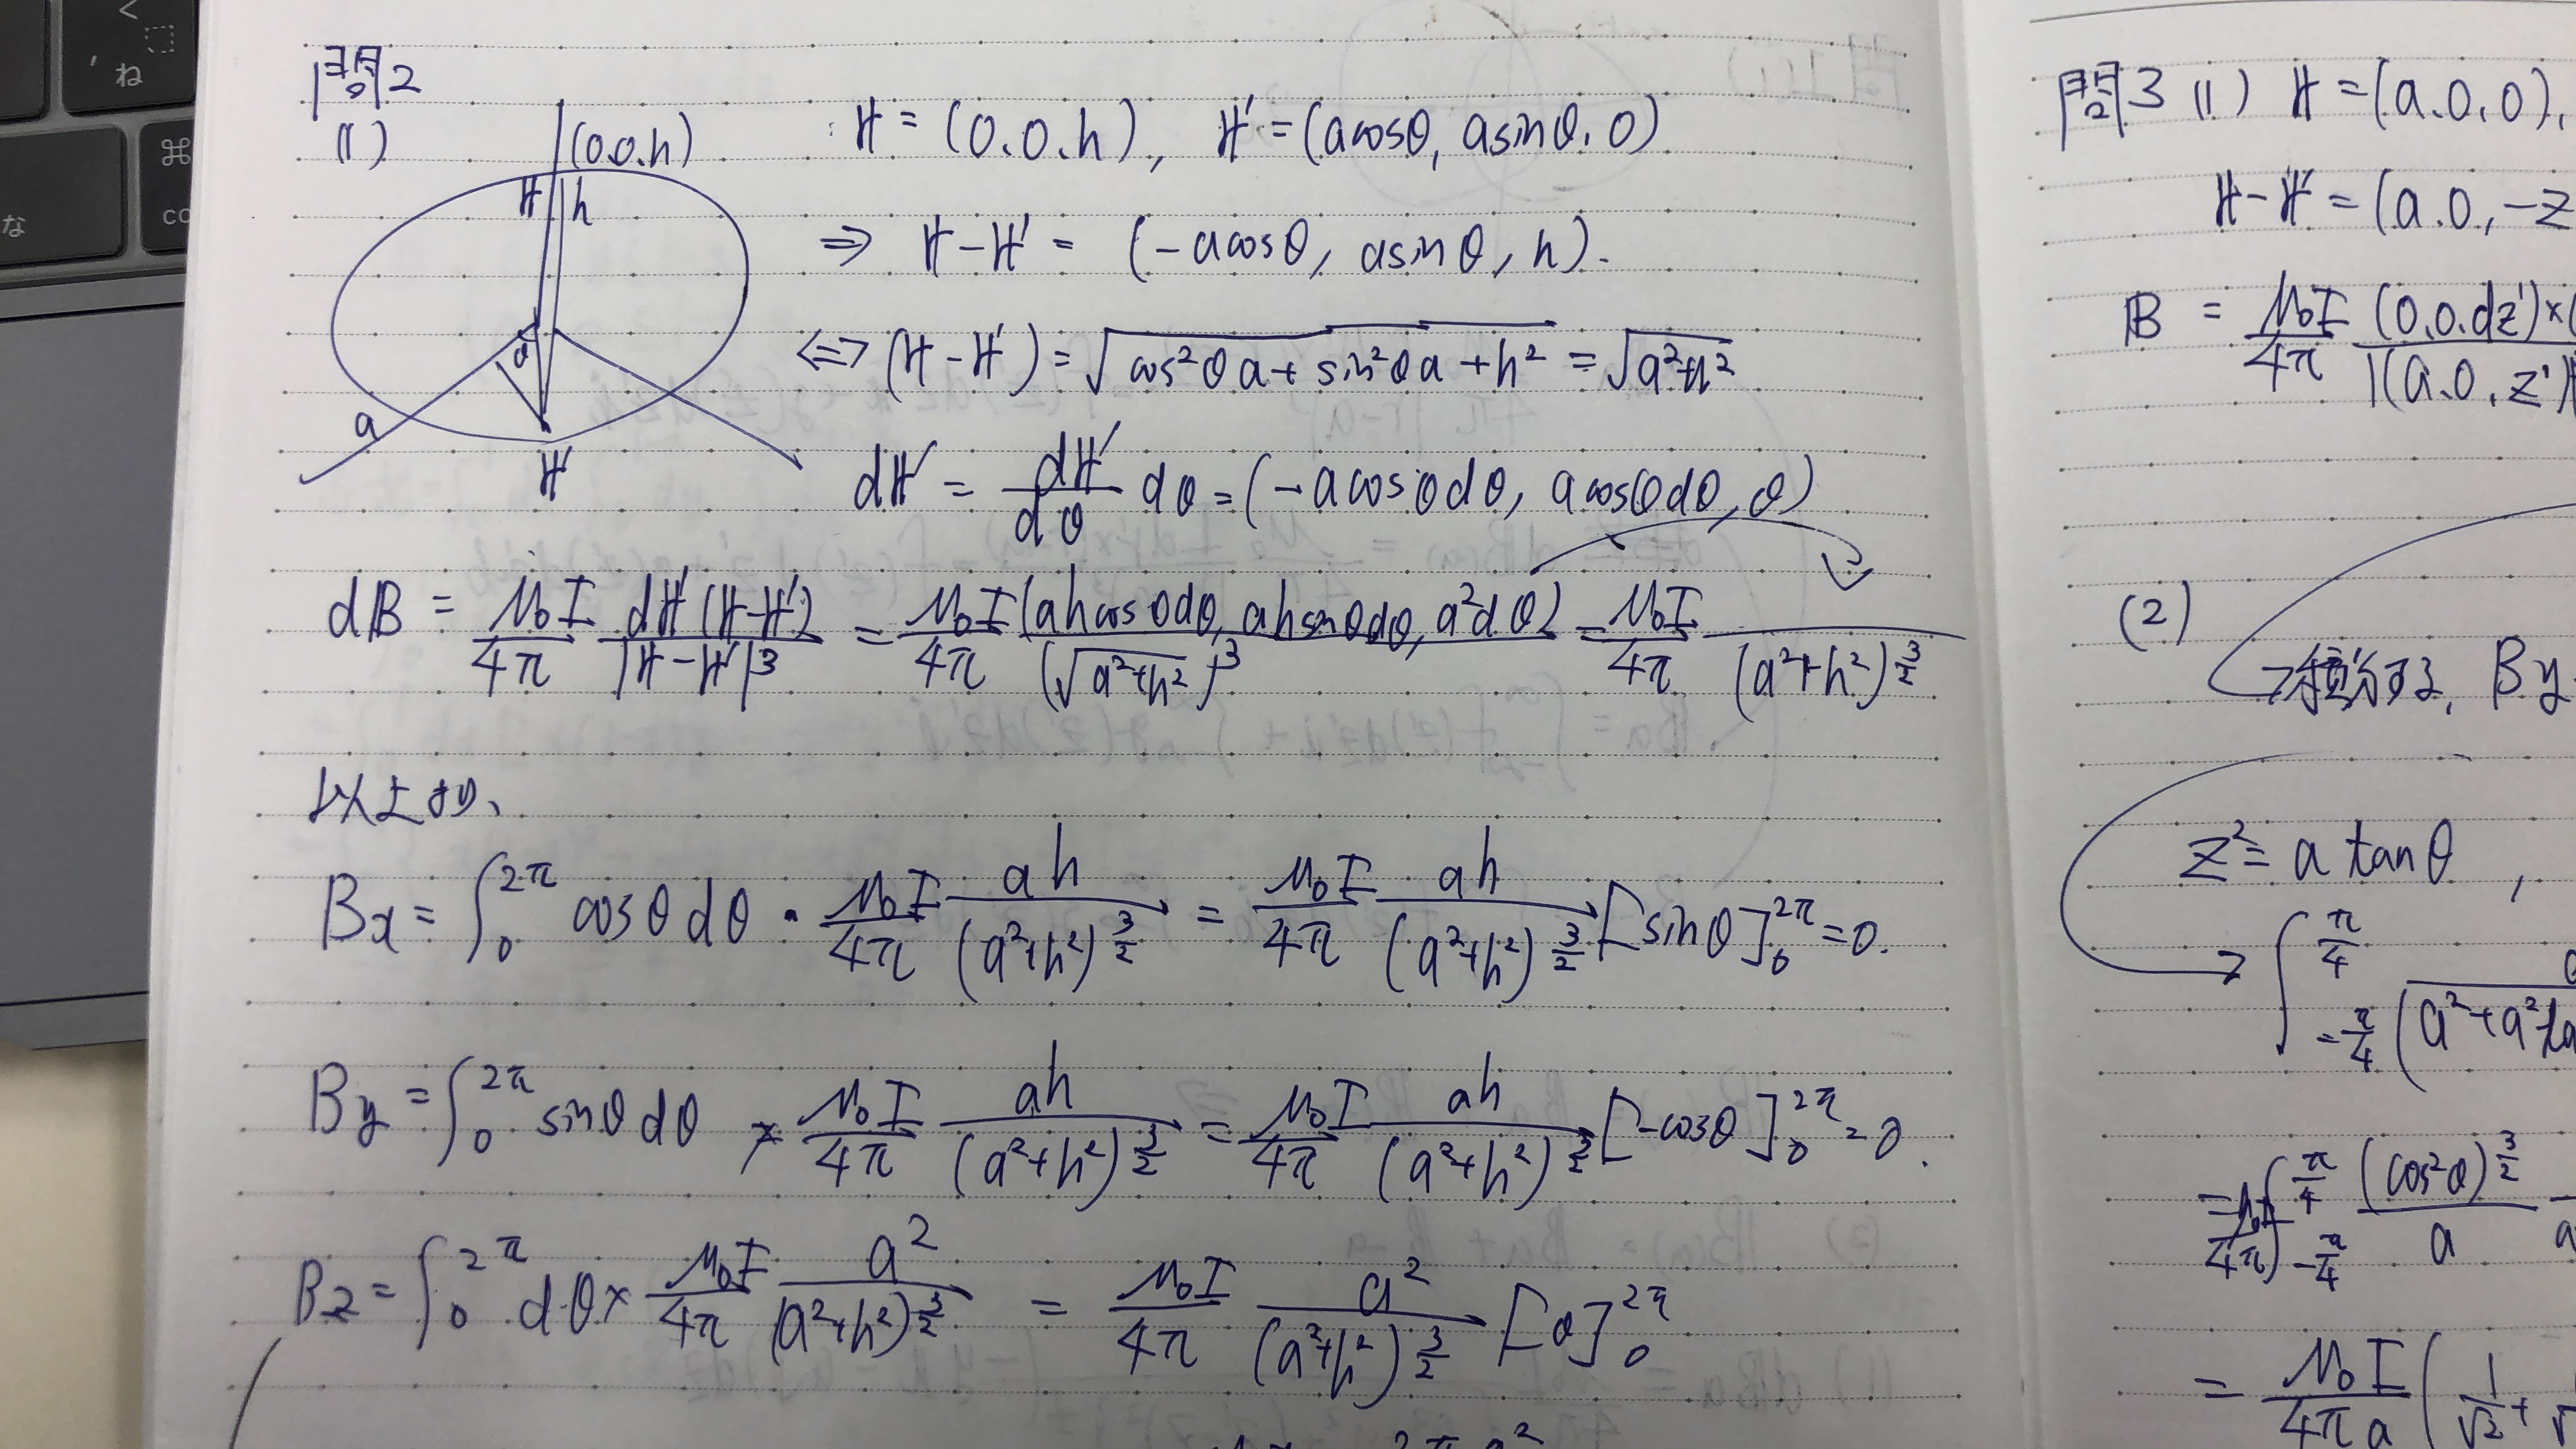 問2
(1)
(0.0.h)
r h
a
a
r'
r = (0.0.h), r' = (acosθ, asinθ, 0)
⇒ r-r' = (-acosθ, asinθ, h).
⇔ (r-r') = √(cos²θa + sin²θa + h²) = √(a²+h²)
dr' = dr'/dθ dθ = (-acosθdθ, acosθdθ, 0)
dB = μ₀I/4π dr'(r-r')/|r-r'|³ = μ₀I/4π (ahcosθdθ, ahsinθdθ, a²dθ)/(√(a²+h²))³ = μ₀I/4π /(a²+h²)^(3/2)
以上より、
Bx = ∫₀^2π cosθdθ · μ₀I/4π ah/(a²+h²)^(3/2) = μ₀I/4π ah/(a²+h²)^(3/2) [sinθ]₀^2π = 0.
By = ∫₀^2π sinθdθ × μ₀I/4π ah/(a²+h²)^(3/2) = μ₀I/4π ah/(a²+h²)^(3/2) [-cosθ]₀^2π = 0.
Bz = ∫₀^2π dθ × μ₀I/4π a²/(a²+h²)^(3/2) = μ₀I/4π a²/(a²+h²)^(3/2) [θ]₀^2π
2π a²
問3 (1) r = (a.0.0),
r-r' = (a.0,-z
B = μ₀I/4π (0.0.dz')×(
|(a.0,z')|
(2)
By
z² = a tanθ ,
∫_(-π/4)^(π/4) (a²+a²ta
= μ₀I/4π ∫_(-π/4)^(π/4) (cos²θ)^(3/2)/a
= μ₀I/4πa (1/√2 +
ね
な
⌘
co